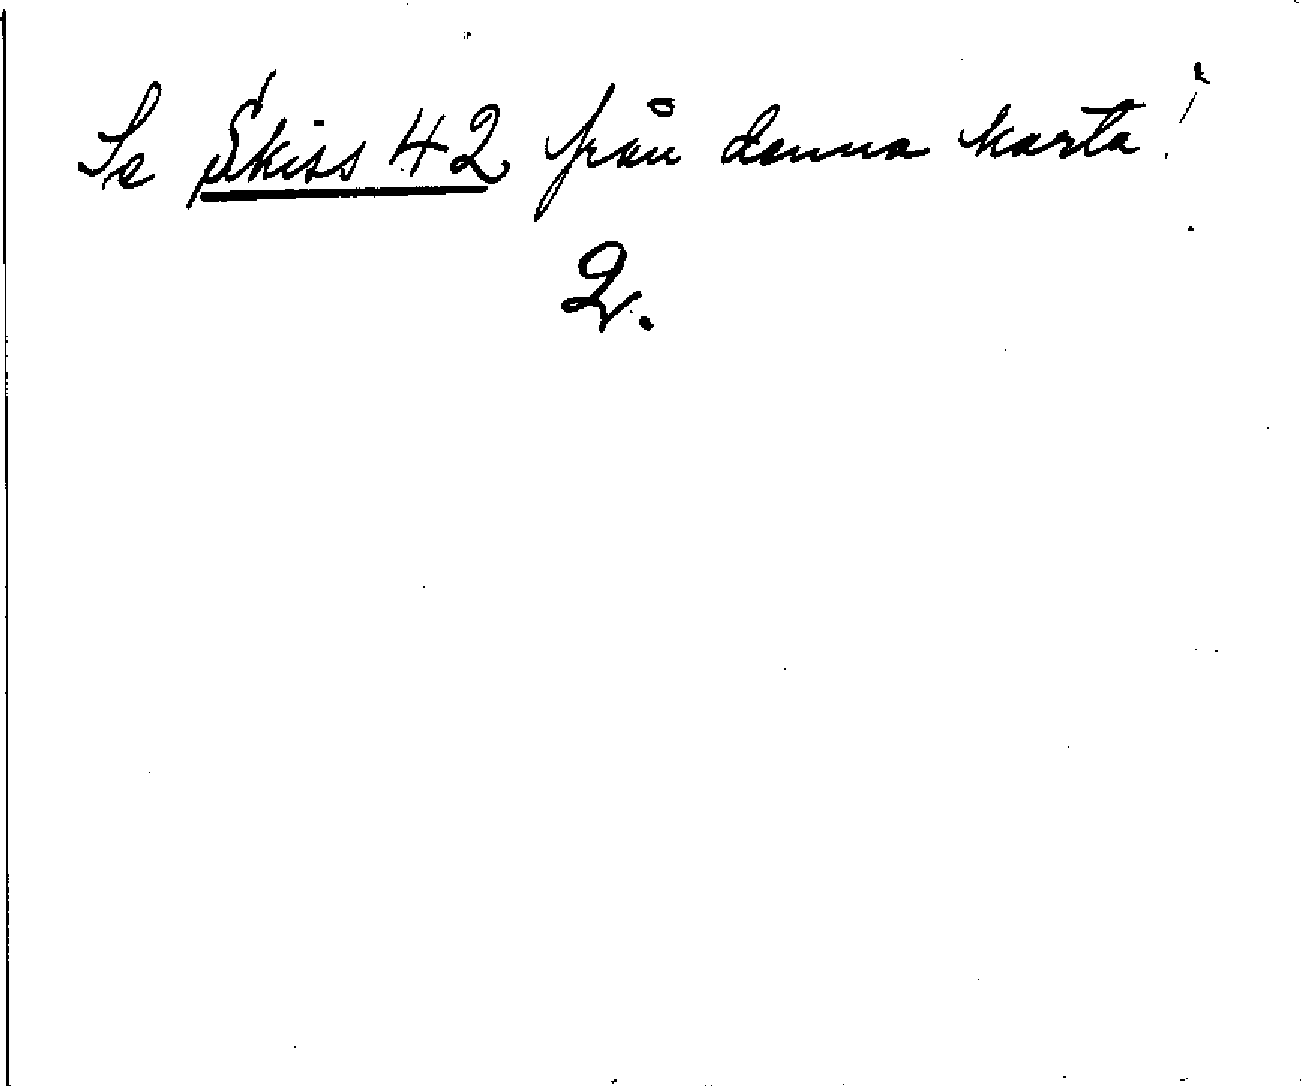 Se Skiss 42 från denna karta!
2.